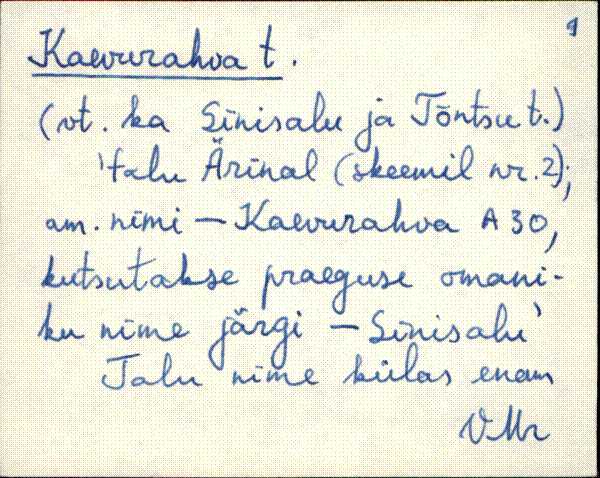 1
Kaevurahva t.
(vt. ka Sinisalu ja Tõntsu t.)
'talu Ärinal (skeemil nr. 2);
am. nimi – Kaevurahva A 30,
kutsutakse praeguse omani-
ku nime järgi – Sinisalu'
Talu nime külas enam
VMr